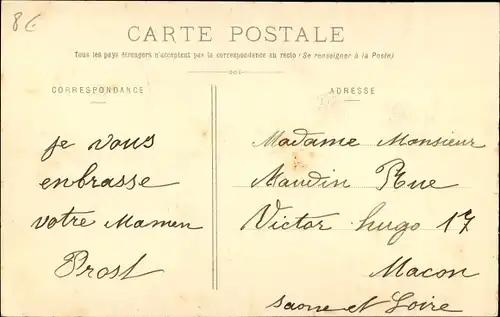 8€
CARTE POSTALE
Tous les pays étrangers n'acceptent pas la correspondance au recto (Se renseigner à la Poste)
CORRESPONDANCE
je vous
enbrasse
votre Mamen
Prost
ADRESSE
Madame Monsieur
Maudin Rue
Victor hugo 17
Macon
saone et Loire